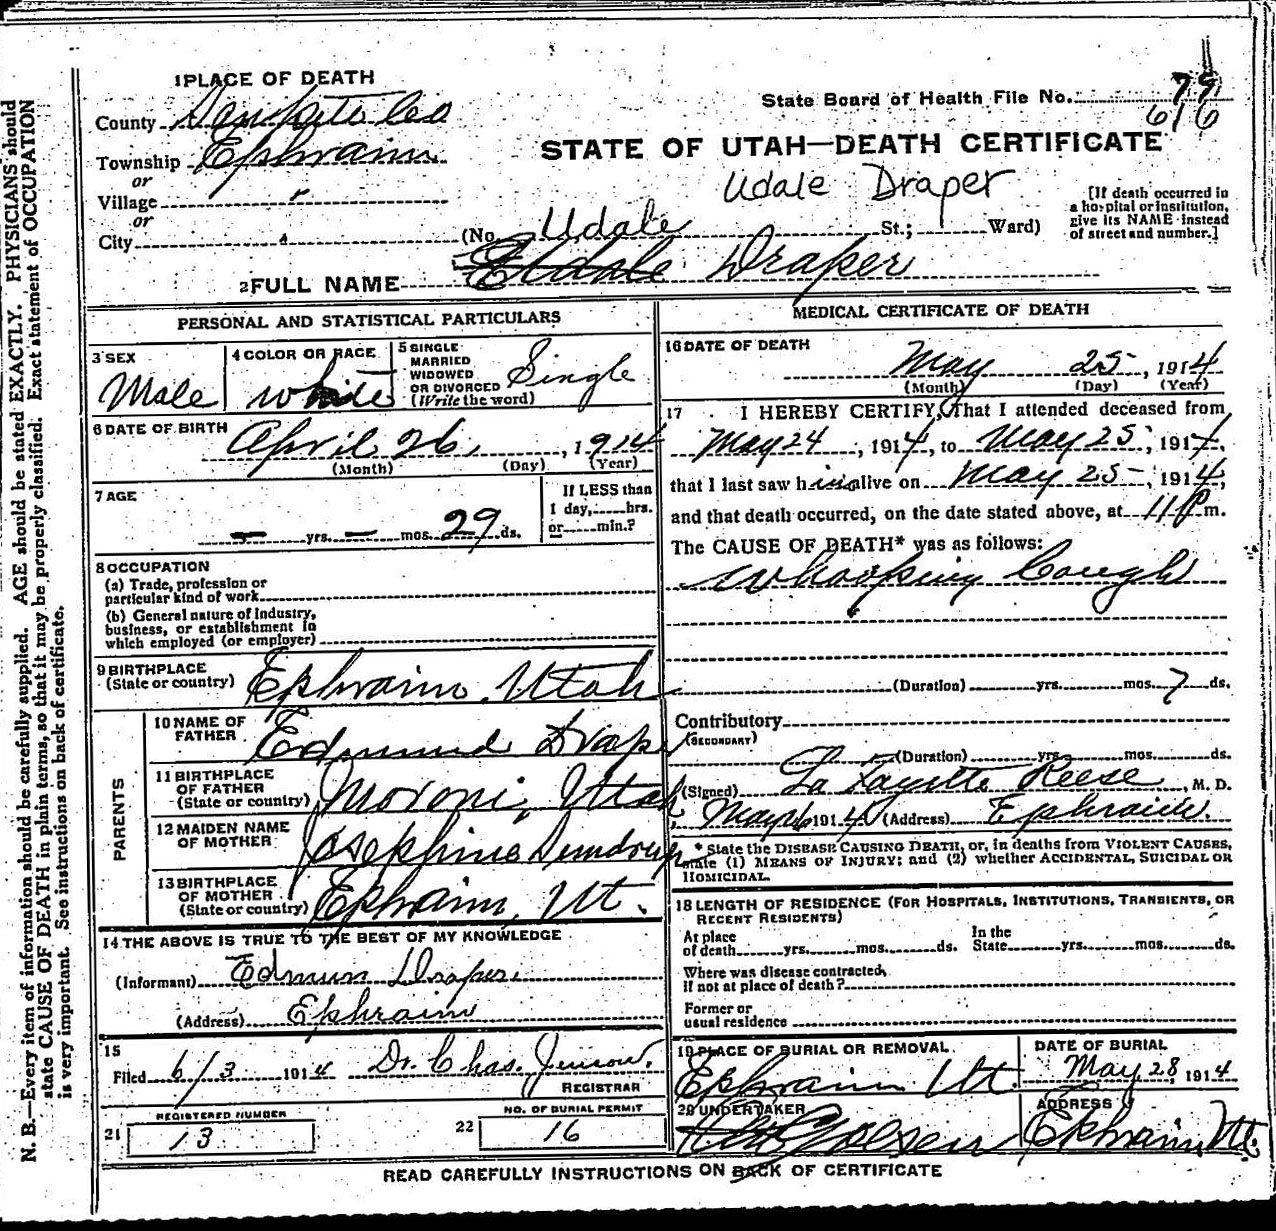 N. B.—Every item of information should be carefully supplied. AGE should be stated EXACTLY. PHYSICIANS should
state CAUSE OF DEATH in plain terms, so that it may be properly classified. Exact statement of OCCUPATION
is very important. See instructions on back of certificate.
1 PLACE OF DEATH
State Board of Health File No. 79
616
County Sanpete Co
Township Ephraim
or
Village
or
City
STATE OF UTAH—DEATH CERTIFICATE
Udale Draper
[If death occurred in
a hospital or institution,
give its NAME instead
of street and number.]
(No. St.; Ward)
Udale
2 FULL NAME Eldale Draper
PERSONAL AND STATISTICAL PARTICULARS
3 SEX
Male
4 COLOR OR RACE
White
5 SINGLE
MARRIED
WIDOWED
OR DIVORCED
(Write the word)
Single
6 DATE OF BIRTH
April 26, 1914
(Month) (Day) (Year)
7 AGE
— yrs. — mos. 29 ds.
If LESS than
1 day,......hrs.
or......min.?
8 OCCUPATION
(a) Trade, profession or
particular kind of work
(b) General nature of industry,
business, or establishment in
which employed (or employer)
9 BIRTHPLACE
(State or country)
Ephraim, Utah
PARENTS
10 NAME OF
FATHER
Edmund Draper
11 BIRTHPLACE
OF FATHER
(State or country)
Moroni, Utah
12 MAIDEN NAME
OF MOTHER
Josephine
13 BIRTHPLACE
OF MOTHER
(State or country)
Ephraim, Ut.
14 THE ABOVE IS TRUE TO THE BEST OF MY KNOWLEDGE
(Informant) Edmun Draper.
(Address) Ephraim
15
Filed 6/3 1914 Dr. Chas. Jenson.
REGISTRAR
REGISTERED NUMBER
21 13
NO. OF BURIAL PERMIT
22 16
MEDICAL CERTIFICATE OF DEATH
16 DATE OF DEATH
May 25, 1914
(Month) (Day) (Year)
17 I HEREBY CERTIFY, That I attended deceased from
May 24, 1914, to May 25, 1914,
that I last saw him alive on May 25, 1914,
and that death occurred, on the date stated above, at 11 P m.
The CAUSE OF DEATH* was as follows:
Whooping Cough
(Duration) yrs. mos. 7 ds.
Contributory
(SECONDARY)
(Duration) yrs. mos. ds.
(Signed) La Fayette Reese, M. D.
May 26 1914 (Address) Ephraim.
* State the DISEASE CAUSING DEATH, or, in deaths from VIOLENT CAUSES,
state (1) MEANS OF INJURY; and (2) whether ACCIDENTAL, SUICIDAL OR
HOMICIDAL.
18 LENGTH OF RESIDENCE (FOR HOSPITALS, INSTITUTIONS, TRANSIENTS, OR
RECENT RESIDENTS)
At place
of death yrs. mos. ds.
In the
State yrs. mos. ds.
Where was disease contracted,
if not at place of death?
Former or
usual residence
19 PLACE OF BURIAL OR REMOVAL
Ephraim Ut.
DATE OF BURIAL
May 28, 1914
20 UNDERTAKER
Olsen
ADDRESS
Ephraim, Ut.
READ CAREFULLY INSTRUCTIONS ON BACK OF CERTIFICATE